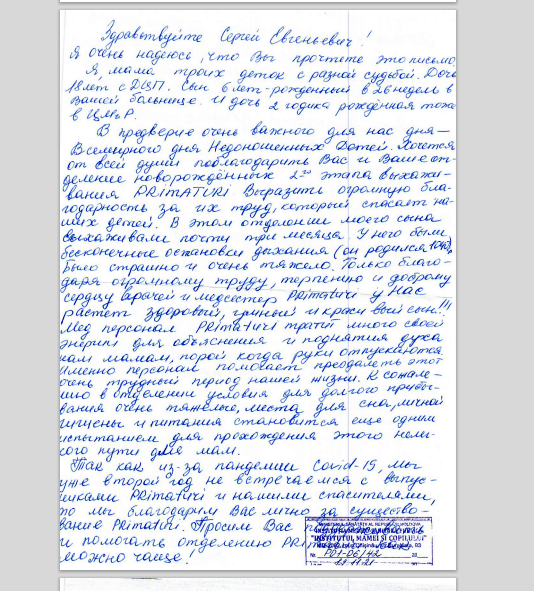 Здравствуйте Сергей Евгеньевич!
Я очень надеюсь, что Вы прочтете это письмо.
Я, мама троих деток с разной судьбой. Дочь
18 лет с ДЦП. Сын 6 лет - рожденный в 26 недель в
Вашей больнице. И дочь 2 годика рождённая тоже
в ЦМиР.
В предверие очень важного для нас дня -
Всемирного дня Недоношенных Детей. Хочется
от всей души поблагодарить Вас и Ваше от-
деление новорождённых 2го этапа выхажи-
вания PRiMATURi Выразить огромную бла-
годарность за их труд, который спасает на-
ших детей. В этом отделении моего сына
выхаживали почти три месяца. У него были
бесконечные остановки дыхания (он родился
Было страшно и очень тяжело. Только благо-
даря огромному труду, терпению и доброму
сердцу врачей и медсестер PRimaturi у нас
растет здоровый, умный и красивый сын!!!
Мед персонал PRimaturi тратит много своей
энергии для объяснения и поднятия духа
нам мамам, порой когда руки отпускаются.
Именно персонал помогает преодолеть этот
очень трудный период нашей жизни. К сожале-
нию в отделении условия для долгого пребы-
вания очень тяжелые, места для сна, личной
гигиены и питания становится еще одним
испытанием для прохождения этого нелег-
кого пути для мам.
Так как из-за пандемии Covid-19, мы
уже второй год не встречаемся с выпус-
никами PRimaturi и нашими спасителями,
то мы благодарим Вас лично за существо-
вание PRimaturi. Просим Вас
и помогать отделению
можно чаще!
"INSTITUTUL MAMEI ȘI COPILULUI"
Nr. P01-06/42 20